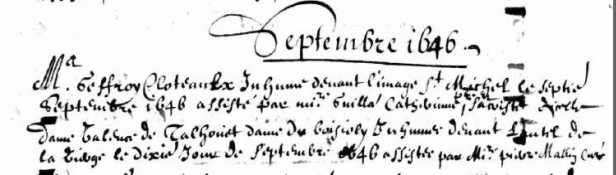 Septembre 1646
Ma
M. Geffroy Cloteaulx Inhumé devant l'image St Michel le septie
Septembre 1646 assisté par mre Guilla Cathe
dame de Talhouet dame du boisoly Inhumee devant l'autel de
la vierge le dixie Jour de Septembre 1646 assistee par Mre pierre Mallin